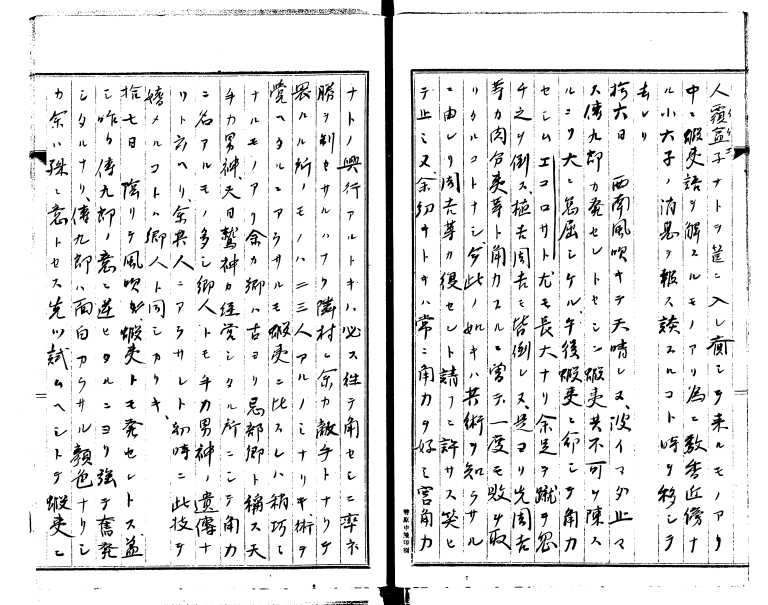 人霸盆子ナトヲ筐ニ入レ賣ニ来ルモノアリ
中ニ蝦夷語ヲ解スルモノアリ為ニ数香近傍ナ
ル小大子ノ消息ヲ報ス談スルコト時ヲ移シテ
去レリ
拾六日 西南風吹キテ天晴レヌ波イマダ止マ
ス傳九郎カ発セレトセシニ蝦夷共不可ヲ陳ス
ルニヨリ大ニ怠屈シケル午後蝦夷ニ命シテ角力
セシムエコロサト尤モ長大ナリ余足ヲ蹴ヲ忽
チ之ヲ倒ス植吉周吉モ皆倒レヌ是ヨリ先周吉
等カ肉分夷等ト角力スルニ曽テ一度モ敗ヲ取
リタルコトナシ今此ノ如キハ其術ヲ知ラサル
ニ由レリ周吉等カ復セント請フニ許サス笑ヒ
テ止ミヌ余幼キトキハ常ニ角力ヲ好ミ宮角力
ナトノ興行アルトキハ必ス往テ角セシニ率ネ
勝ヲ制セサルハナク隣村ニ余カ敵手トナリテ
畏ルル所ノモノハ二三人アルノミナリキ術ヲ
覚ヘタルニアラサルモ蝦夷ニ比スレハ稍巧ミ
ナルモノアリ余カ郷ハ古ヨリ忌部郷ト稱ス天
手力男神天日鷲神カ経営シタル所ニシテ角力
ニ名アルモノ多シ郷人トモ手力男神ノ遺傳ナ
リト云ヘリ余其人ニアラサレト初時ニ此技ヲ
嬉メルコトハ郷人ト同シカリキ
拾七日 陰リテ風吹ク蝦夷トモ発セレトス蓋
シ昨ハ傳九郎ノ意ニ逆ヒタルニヨリ強テ奮発
シタルナリ傳九郎ハ面白カラサル顔色ナリシ
カ余ハ殊ニ意トセス先ツ試ムヘシトテ蝦夷ニ